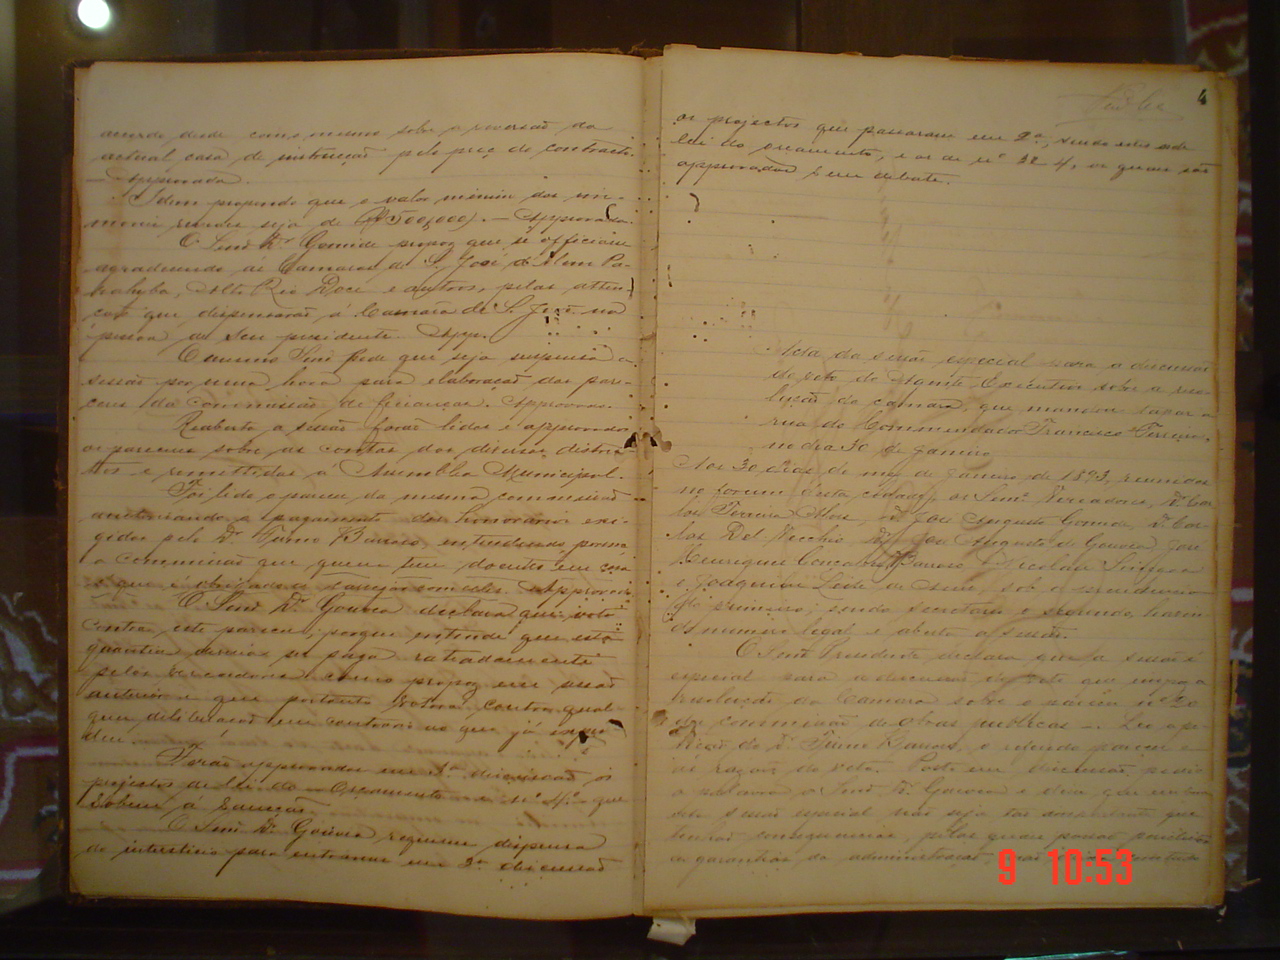 accordo, desde como mesmo sobre a reversão da
actual casa de instrucção pelo preço do contracto.
— Approvada.
Idem propondo que o valor minimo dos im-
moveis ruraes seja de (500$000). — Approvada.
O Senr. Dr. Gomide propoz que se officiasse
agradecendo ás Camaras de S. José d'Alem Pa-
rahyba, Alto Rio Doce e outros, pelas atten-
ções que dispensarão á Camara de S. José na
pessoa do seu presidente. App.
O mesmo Senr. pede que seja suspensa a
sessão por uma hora para elaboração dos pare-
ceres da Commissão de finanças. Approvado.
Reaberta a sessão forão lidos e approvados
os pareceres sobre as contas dos diversos distric-
tos e remettidas á Assembléa Municipal.
Foi lido o parecer da mesma commissão
autorisando o pagamento dos honorarios exi-
gidos pelo Dr. Firmo Barroso, entendendo porem
a Commissão que quem tem doentes em casa
é que é obrigado a Approvado
O Senr. Dr. Gouvea declara que vota
contra este parecer, porque entende que esta
quantia deveria ser paga rateadamente
pelos vereadores como propoz em sessão
anterior e que portanto votará contra qual-
quer deliberação em contrario ao que já expen-
deu.
Forão approvados em 1ª discussão os
projectos de lei do orçamento e nº 4º que
sobem á sancção.
O Senr. Dr. Gouvea requereu dispensa
do intersticio para entrarem em 2ª discussão
4
os projectos que passaram em 2ª, sendo estes o de
lei do orçamento, e os de nº 32 4, os quaes são
approvados sem debate.
Acta da sessão especial para a discussão
do veto do Agente Executivo sobre a reso-
lução da camara, que mandou tapar a
rua do Commendador Francisco Ferreira,
no dia 30 de Janeiro
Aos 30 dias do mez de Janeiro de 1893, reunidos
no forum d'esta cidade, os Senrs. Vereadores, Dr. Car-
los Ferreira Alves, Dr. José Augusto Gomide, Dr. Car-
los Del Vecchio, Dr. José Augusto de Gouvea, José
Henrique Gonçalves Barroso, Nicolau
e Joaquim Leite de sob a presidencia
do primeiro; sendo secretario o segundo, haven-
do numero legal é aberta a sessão.
O Senr. Presidente declara que a sessão é
especial para a discussão do veto que oppoz a
resolução da Camara sobre o parecer nº 20
da commissão de obras publicas. — Leu a pe-
tição do Dr. Firmo Barroso, o referido parecer e
as razões do veto. Posto em discussão, pedio
a palavra o Senr. Dr. Gouvea e disse que embora
esta sessão especial não seja tão importante que
tenha consequencias, pelas quaes possão
as garantias da administração
9 10:53